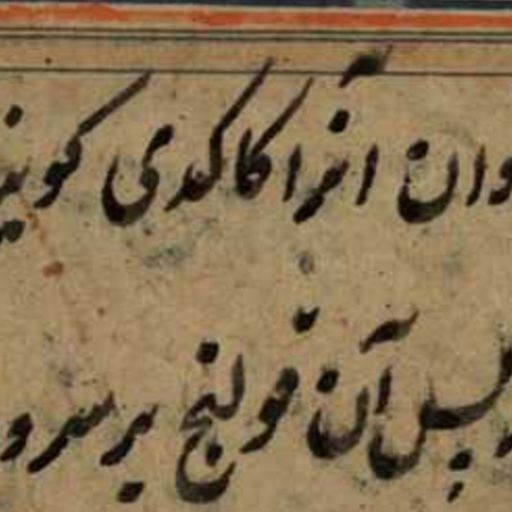 وان آنرا کاکدی کویند
پس آن قولنج بر سر و